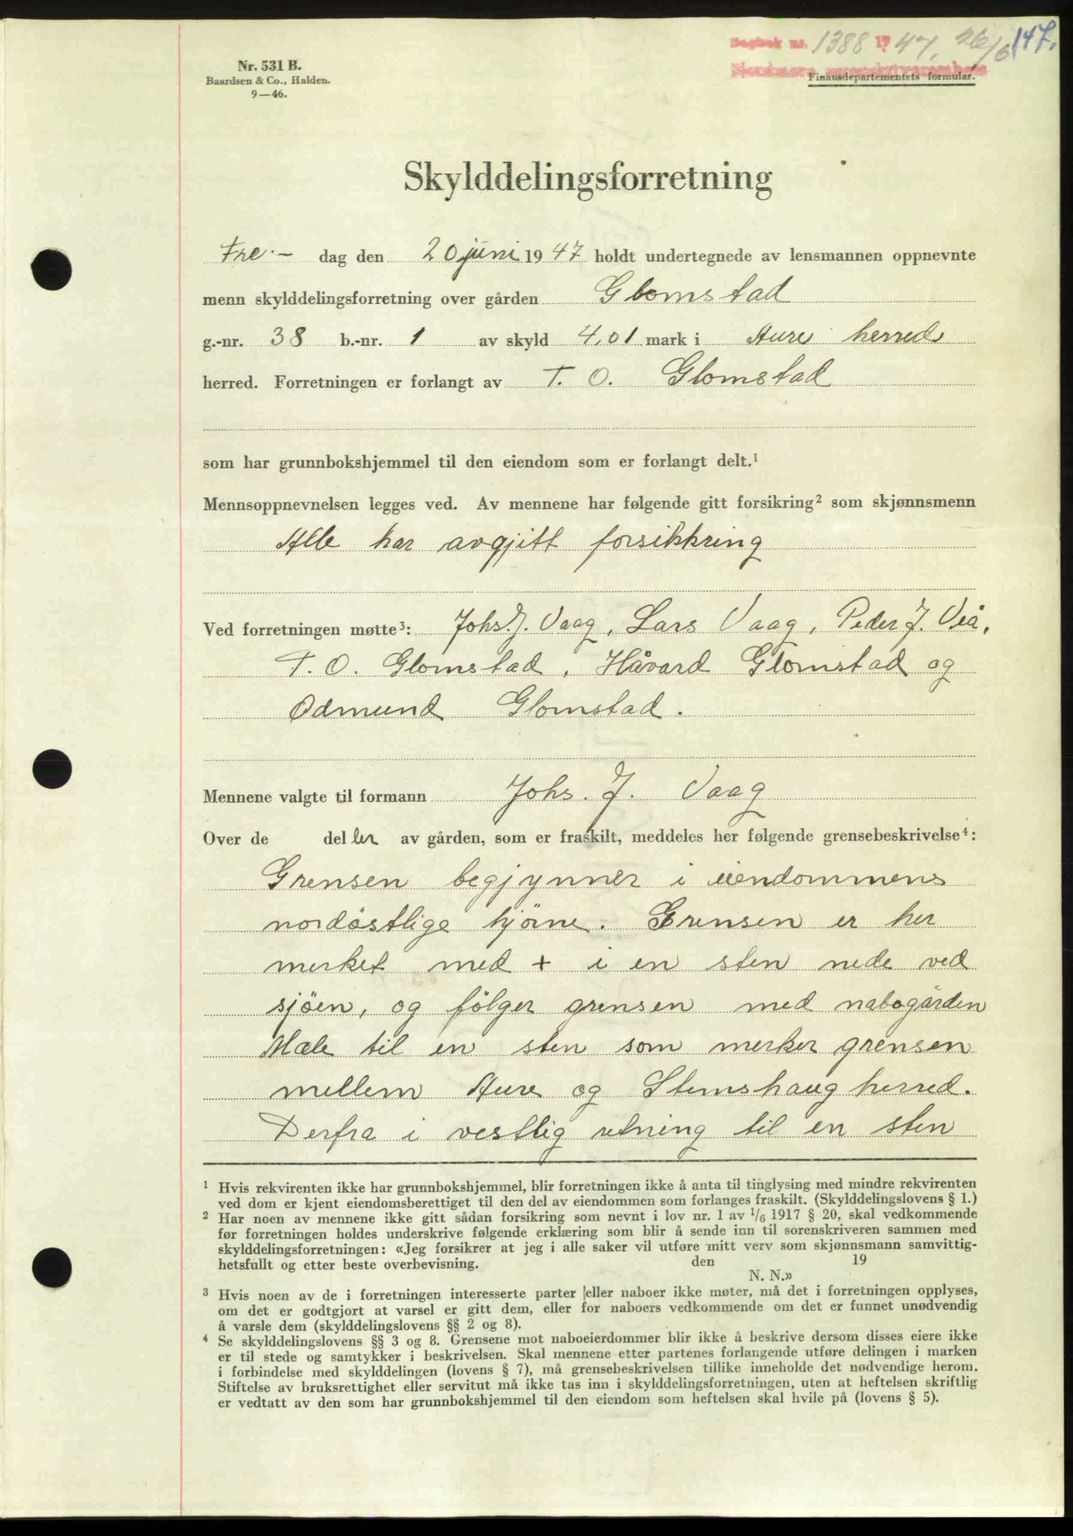 Dagbok nr. 1388 1947, 26/6 147.
Nordmøre sorenskriverembete
Nr. 531 B.
Baardsen & Co., Halden.
9—46.
Finansdepartementets formular.
Skylddelingsforretning
Fre.- dag den 20 juni 1947 holdt undertegnede av lensmannen oppnevnte
menn skylddelingsforretning over gården Glomstad
g.-nr. 38 b.-nr. 1 av skyld 4,01 mark i Aure herreds
herred. Forretningen er forlangt av T. O. Glomstad
som har grunnbokshjemmel til den eiendom som er forlangt delt.¹
Mennsoppnevnelsen legges ved. Av mennene har følgende gitt forsikring² som skjønnsmenn
Alle har avgjitt forsikkring
Ved forretningen møtte³: Johs. J. Vaag, Lars Vaag, Peder J. Veå,
T. O. Glomstad, Håvard Glomstad og
Odmund Glomstad.
Mennene valgte til formann Johs. J. Vaag
Over de deller av gården, som er fraskilt, meddeles her følgende grensebeskrivelse⁴:
Grensen begjynner i eiendommens
nordöstlige hjörne. Grensen er her
merket med + i en sten nede ved
sjöen, og fölger grensen med nabogården
Mæle til en sten som merker grensen
mellem Aure og Stemshaug herred.
Derfra i vestlig retning til en sten
¹ Hvis rekvirenten ikke har grunnbokshjemmel, blir forretningen ikke å anta til tinglysing med mindre rekvirenten
ved dom er kjent eiendomsberettiget til den del av eiendommen som forlanges fraskilt. (Skylddelingslovens § 1.)
² Har noen av mennene ikke gitt sådan forsikring som nevnt i lov nr. 1 av 1/6 1917 § 20, skal vedkommende
før forretningen holdes underskrive følgende erklæring som blir å sende inn til sorenskriveren sammen med
skylddelingsforretningen: «Jeg forsikrer at jeg i alle saker vil utføre mitt verv som skjønnsmann samvittig-
hetsfullt og etter beste overbevisning. den 19
N. N.»
³ Hvis noen av de i forretningen interesserte parter eller naboer ikke møter, må det i forretningen opplyses,
om det er godtgjort at varsel er gitt dem, eller for naboers vedkommende om det er funnet unødvendig
å varsle dem (skylddelingslovens §§ 2 og 8).
⁴ Se skylddelingslovens §§ 3 og 8. Grensene mot naboeierdommer blir ikke å beskrive dersom disses eiere ikke
er til stede og samtykker i beskrivelsen. Skal mennene etter partenes forlangende utføre delingen i marken
i forbindelse med skylddelingen (lovens § 7), må grensebeskrivelsen tillike inneholde det nødvendige herom.
Stiftelse av bruksrettighet eller servitut må ikke tas inn i skylddelingsforretningen, uten at heftelsen skriftlig
er vedtatt av den som har grunnbokshjemmel til den eiendom som heftelsen skal hvile på (lovens § 5).